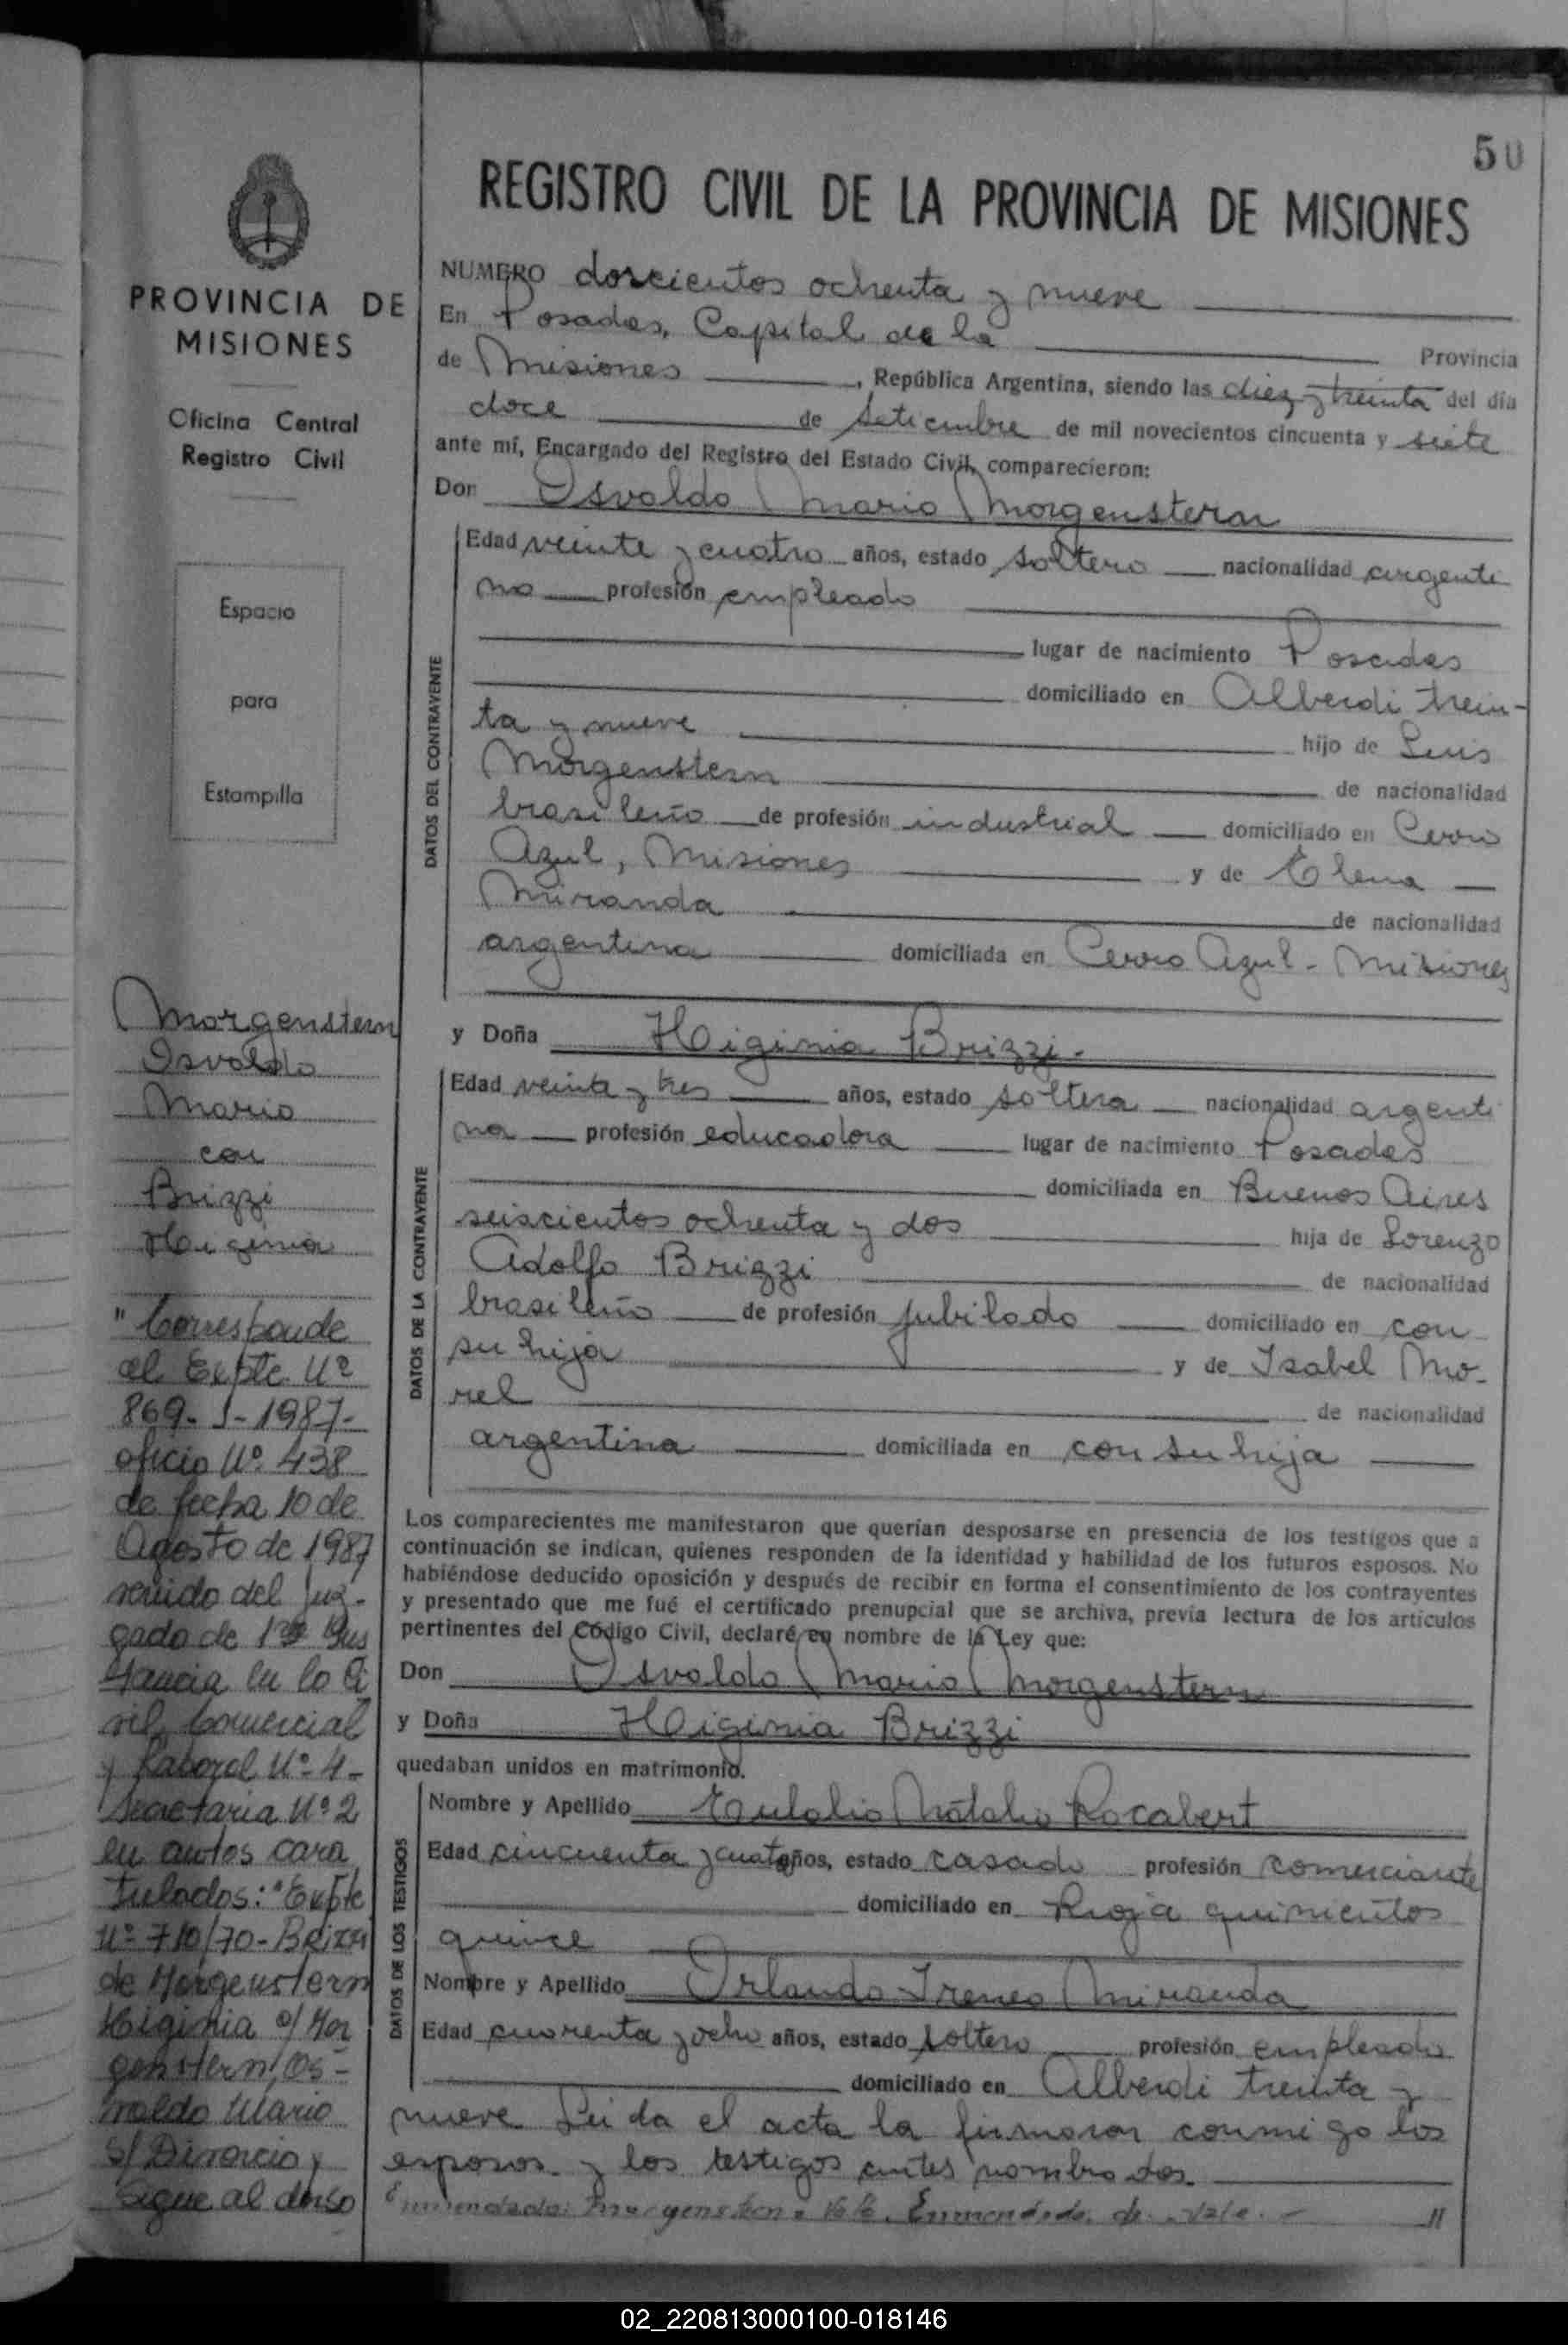 50
REGISTRO CIVIL DE LA PROVINCIA DE MISIONES
PROVINCIA DE
MISIONES
Oficina Central
Registro Civil
Espacio
para
Estampilla
NUMERO doscientos ochenta y nueve
En Posadas, Capital de la Provincia
de Misiones, República Argentina, siendo las diez y treinta del día
doce de setiembre de mil novecientos cincuenta y siete
ante mí, Encargado del Registro del Estado Civil, comparecieron:
Don Osvaldo Mario Morgenstern
DATOS DEL CONTRAYENTE
Edad veinte y cuatro años, estado soltero nacionalidad argenti
no profesión empleado
lugar de nacimiento Posadas
domiciliado en Alberdi trein-
ta y nueve hijo de Luis
Morgenstern de nacionalidad
brasileño de profesión industrial domiciliado en Cerro
Azul, Misiones y de Elena
Miranda de nacionalidad
argentina domiciliada en Cerro Azul - Misiones
y Doña Higinia Brizzi.
DATOS DE LA CONTRAYENTE
Edad veinte y tres años, estado soltera nacionalidad argenti
na profesión educadora lugar de nacimiento Posadas
domiciliada en Buenos Aires
seiscientos ochenta y dos hija de Lorenzo
Adolfo Brizzi de nacionalidad
brasileño de profesión jubilado domiciliado en con
su hija y de Isabel Mo-
rel de nacionalidad
argentina domiciliada en con su hija
Los comparecientes me manifestaron que querían desposarse en presencia de los testigos que a
continuación se indican, quienes responden de la identidad y habilidad de los futuros esposos. No
habiéndose deducido oposición y después de recibir en forma el consentimiento de los contrayentes
y presentado que me fué el certificado prenupcial que se archiva, previa lectura de los artículos
pertinentes del Código Civil, declaré en nombre de la Ley que:
Don Osvaldo Mario Morgenstern
y Doña Higinia Brizzi
quedaban unidos en matrimonio.
DATOS DE LOS TESTIGOS
Nombre y Apellido Eulalio Natalio Rocabert
Edad cincuenta y cuatro años, estado casado profesión comerciante
domiciliado en Rioja quinientos
quince
Nombre y Apellido Orlando Ireneo Miranda
Edad cuarenta y ocho años, estado soltero profesión empleado
domiciliado en Alberdi treinta y
nueve Leida el acta la firmaron conmigo los
esposos y los testigos antes nombrados.
Enmendado: Morgenstern: Vale. Enmendado: de: Vale. //
Morgenstern
Osvaldo
Mario
con
Brizzi
Higinia
"Corresponde
al Expte. Nº
869-J-1987-
oficio Nº 438
de fecha 10 de
Agosto de 1987
venido del Juz-
gado de 1ra Ins
tancia en lo Ci
vil, Comercial
y Laboral Nº 4-
Secretaria Nº 2
en autos cara
tulados: "Expte
Nº 710/70-BRizzi
de Morgenstern
Higinia c/ Mor
genstern, Os-
valdo Mario
s/ Divorcio y
Sigue al dorso
02_220813000100-018146